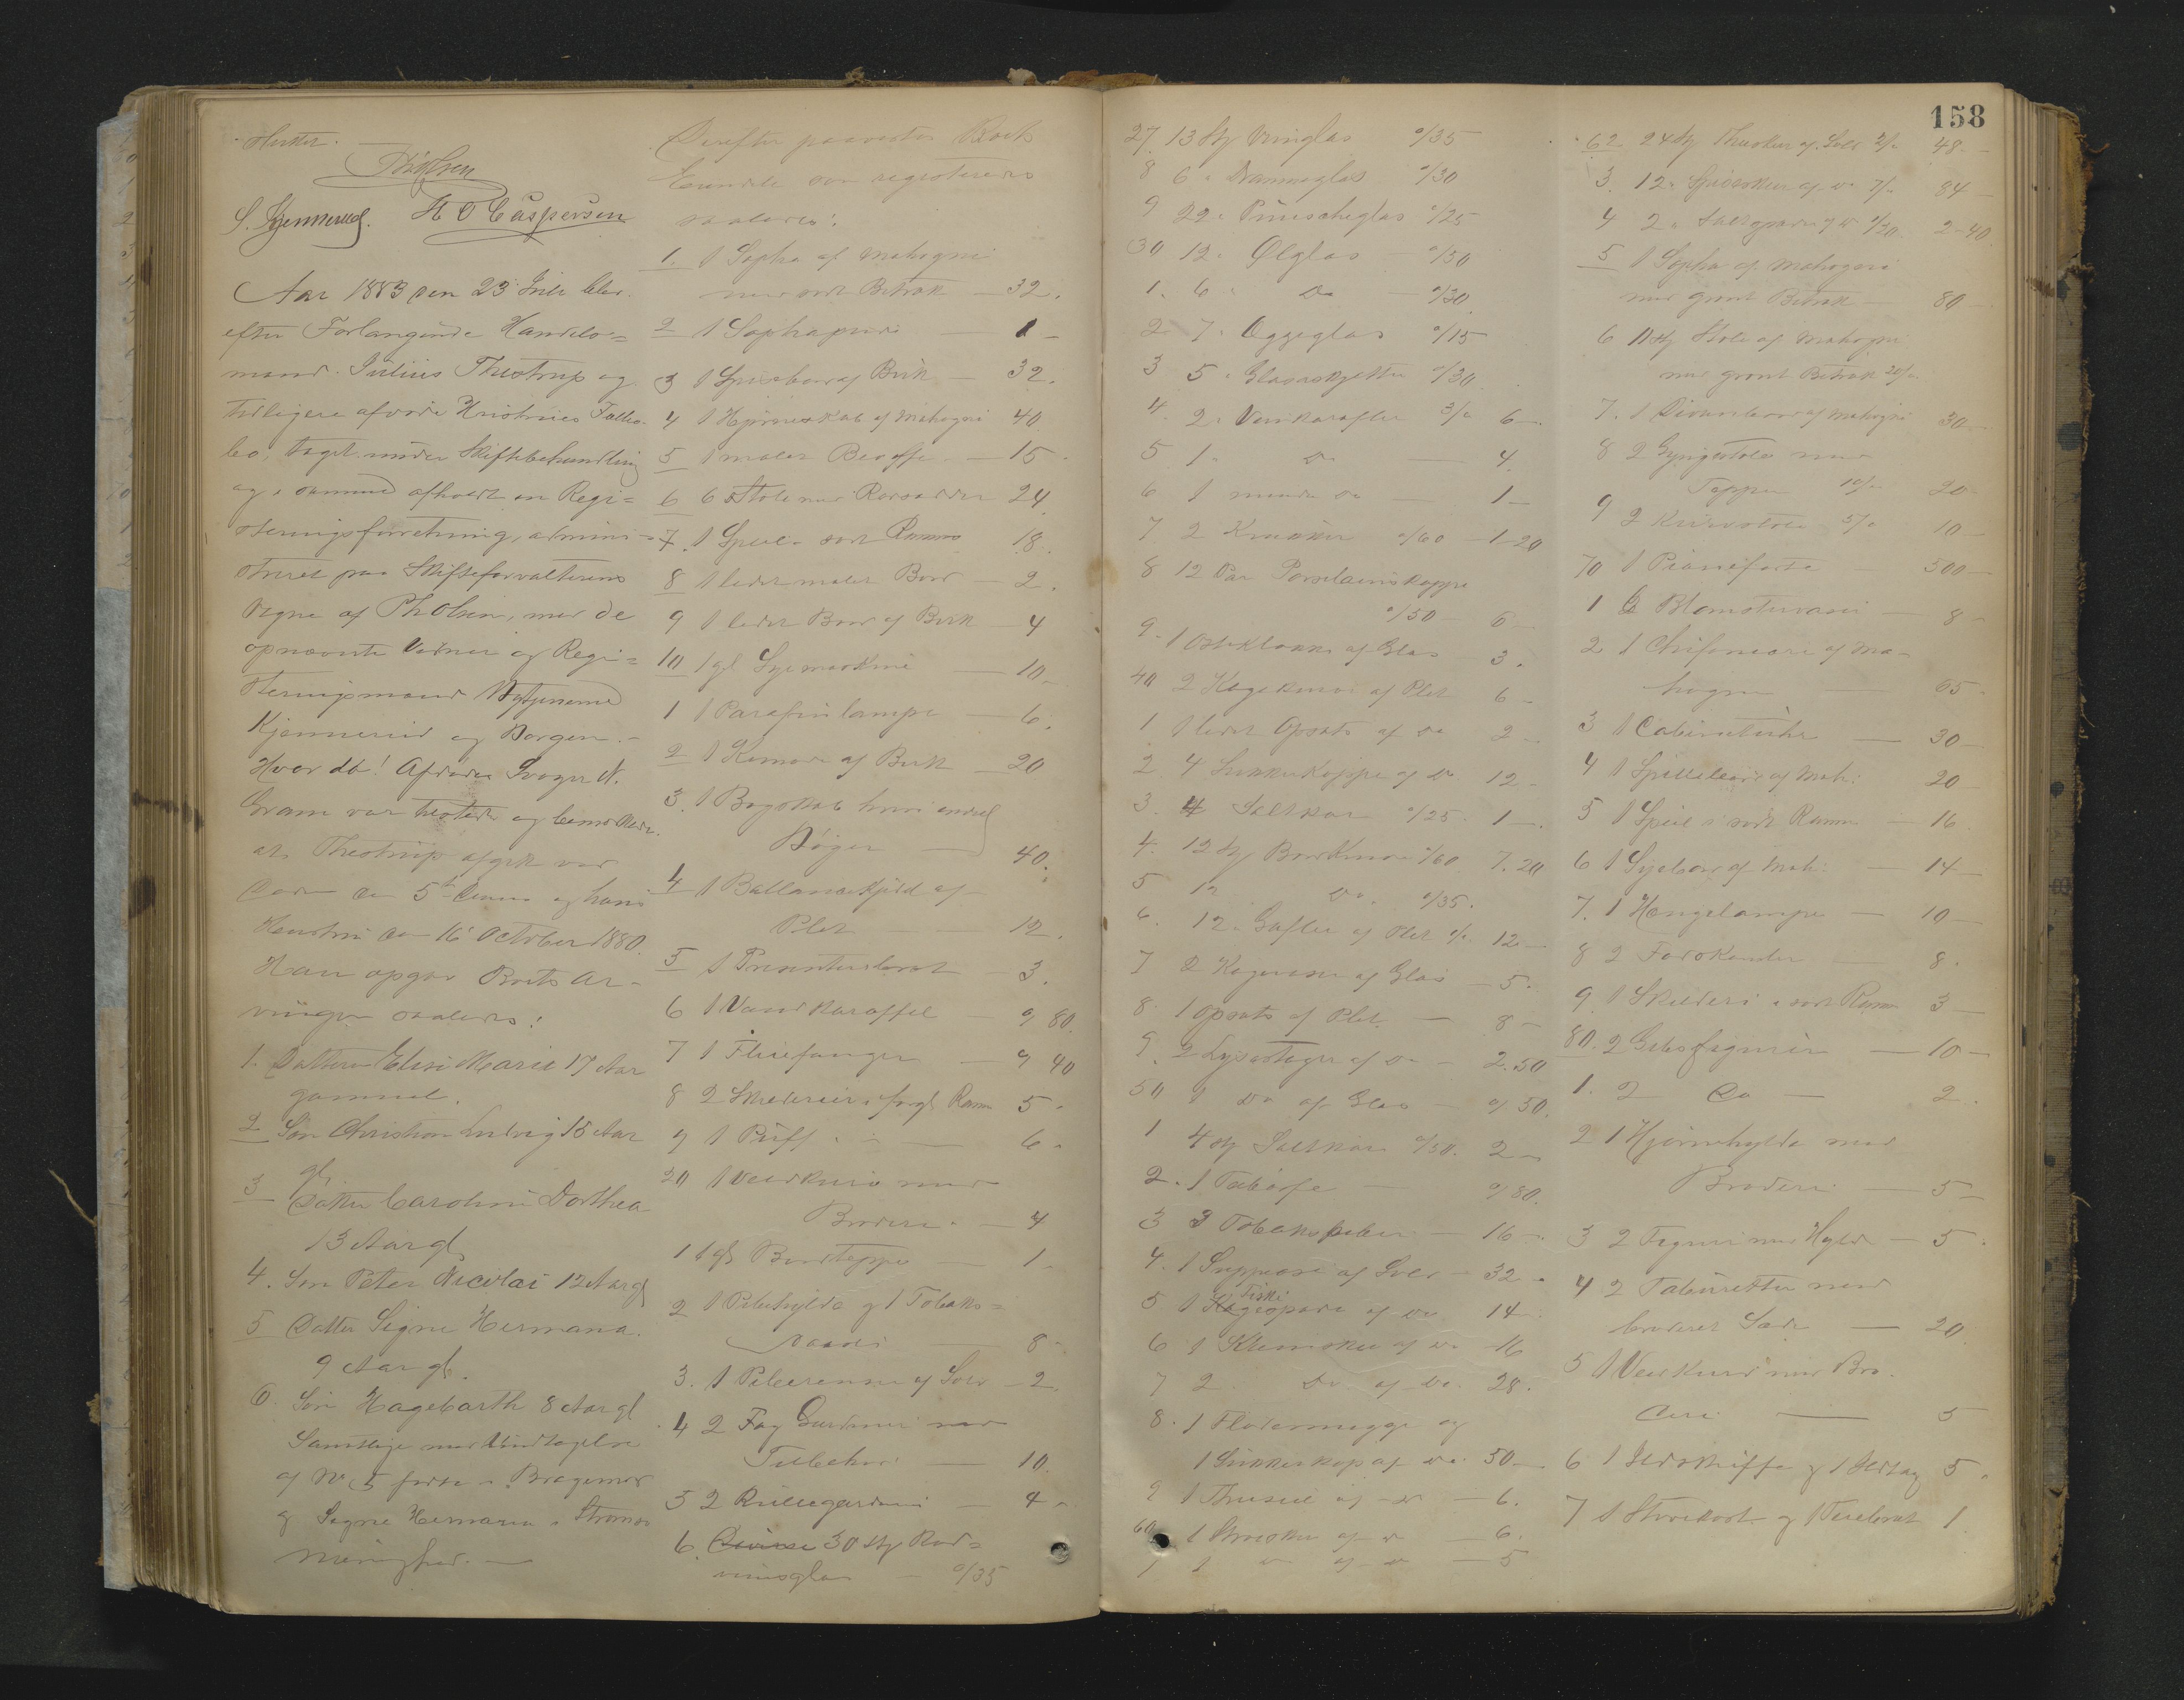 Slutter.
PhOlsen
S. Kjennerud. H O Caspersen
Aar 1883 den 23 Juli blev
efter Forlangende Handels=
mand Julius Thestrup og
tidligere afdøde Hustrues Fælles-
bo taget under Skiftebehandling
og i samme afholdt en Regi=
steringsforretning, admini-
streret paa Skifteforvalterens
Vegne af PhOlsen, med de
opnævnte Vidner og Regi=
steringsmænd
Kjennerud og Borgen. -
Hvorda! Afdødes Svoger N.
Gram var tilstede og bemærkede
at Thestrup afgik ved
Døden den 5te dennes og hans
Hustru den 16 October 1880.
Han opgav Boets Ar-
vinger saaledes:
1. Datteren Elise Marie 17 Aar
gammel.
2 Søn Christian Ludvig 15 Aar
gl.
3 Datter Caroline Dorthea
13 Aar gl
4. Søn Peter Nicolai 12 Aar gl
5 Datter Signe Hermana.
9 Aar gl.
6. Søn Hagebarth 8 Aar gl
Samtlige med Undtagelse
af No 5 fødte i Bragernes
og Signe Hermana i Strømsø
Menighed. —
Derefter paavistes Boets
Eiendele som registeredes
saaledes:
1. 1 Sopha af Mahogni
med sort Betræk — 32.
2 1 Sophapude — 1 -
3 1 Spisebord af Birk — 32.
4 1 Hjørneskab af Mahogni 40.
5 1 malet Buffe — 15 -
6 6 Stole med Rørsæder 24.
7. 1 Speil i sort Ramme 18.
8 1 lidet malet Bord — 2.
9 1 lidet Bord af Birk — 4
10 1 gl Syemaskine — 10 -
1 1 Parafinlampe — 6.
2 1 Komode af Birk — 20
3. 1 Bogskab hvori endel
Bøger — 40.
4 1 Ballanceskjold af
Plet — 12.
5 1 Presenteerbret 3.
6 1 Vandkaraffel — 0/80.
7 1 Fluefanger — 0/40
8 2 Skilderier i forgl Ramme 5 -
9 1 Puff — 6 -
20 1 Vedkurv med
Broderi — 4
1 1 gl Bordteppe — 1 -
2 1 Pibehylde og 1 Tobaks=
daase — 8 -
3. 1 Piberenser af Sølv — 2.
4 2 Fag Gardiner med
Tilbehør — 10
5 2 Rullegardiner — 4 -
6. Diverse 30 Stk Rød=
vinsglas — 0/35
158
27. 13 Stk Vinglas 0/35
8 6 " Drammeglas 0/30
9 22 " Puncheglas 0/25
30 12 " Ølglas — 0/50
1. 6 " Do — 0/30
2 7 " Æggeglas 0/15
3 5 " Glasasjetter 0/30
4. 2 " Vinkarafler 3/" 6 —
5 1 " Do — 4.
6 1 mindre do — 1 —
7 2 Krukker 0/60 — 1-20
8 12 Par Porselainskopper
0/50 — 6 -
9. 1 Osteklokke af Glas 3.
40 2 Kagekurve af Plet 6 -
1 1 lidet Opsats af do 2 -
2 4 Sukkerkopper af Do 12 -
3. 4 Saltkar 0/25. 1 —
4. 12 Stk Bordknive 0/60 7.20
5 12 Do. 0/35.
6. 12 " Gafler af Plet 1/" 12 —
7 2 Kageruse af Glas — 5.
8. 1 Opsats af Plet — 8 -
9. 2 Lysestager af do — 2.50
50 1 Do af Glas — 0/50.
1 4 Stk Saltkar 0/50. 2 -
2. 1 — 0/80.
3 3 Tobakspiber — 16 -
4. 1 Suppeøse af Sølv — 32 -
5 1 Kagespade Fiske af Do 14 -
6 1 Klemske af do 16
7 2 Do af Do. 28.
8. 1 Flødemugge og
1 Sukkerkop af do. 50 —
9 1 Thesiil af do — 6.
60 1 af do — 6.
1 1 do af do — 5
62 24 Stk Theskeer af Sølv 2/" 48. -
3. 12 " Spiseskeer af do 7/" 84 -
4 2 " Saltspader af do 1/20. 2-40
5 1 Sopha af Mahogni
med grønt Betræk — 80 -
6 11 Stk Stole af Mahogni
med grønt Betræk 20/"
7. 1 Divanbord af Mahogni 30 -
8 2 Gyngestole med
Tepper 10/" 20 -
9 2 Kurvstole 5/" 10 -
70 1 Pianoforte — 500 —
1 6 Blomstervaser — 8 -
2 1 Chifoniere af Ma-
hogni — 65 -
3 1 Cabinetuhr — 30 -
4 1 Spillebord af Mah: 20 -
5 1 Speil i sort Ramme — 16
6 1 Syebord af Mah: — 14 -
7. 1 Hængelampe — 10 -
8 2 — 8 -
9. 1 Skilderi i sort Ramme 3 —
80. 2 Gibsfigurer — 10 —
1. 2 Do — 2 .
2 1 Hjørnehylde med
Broderi — 5 -
3 2 Figurer med Hylde — 5 -
4 2 Tabouretter med
broderet Sæde — 20
5 1 Vedkurv med Bro-
deri — 5
6 1 Ildskuffe og 1 Ildtang 5 -
7 1 Støvekost og 1 Feiebret 1